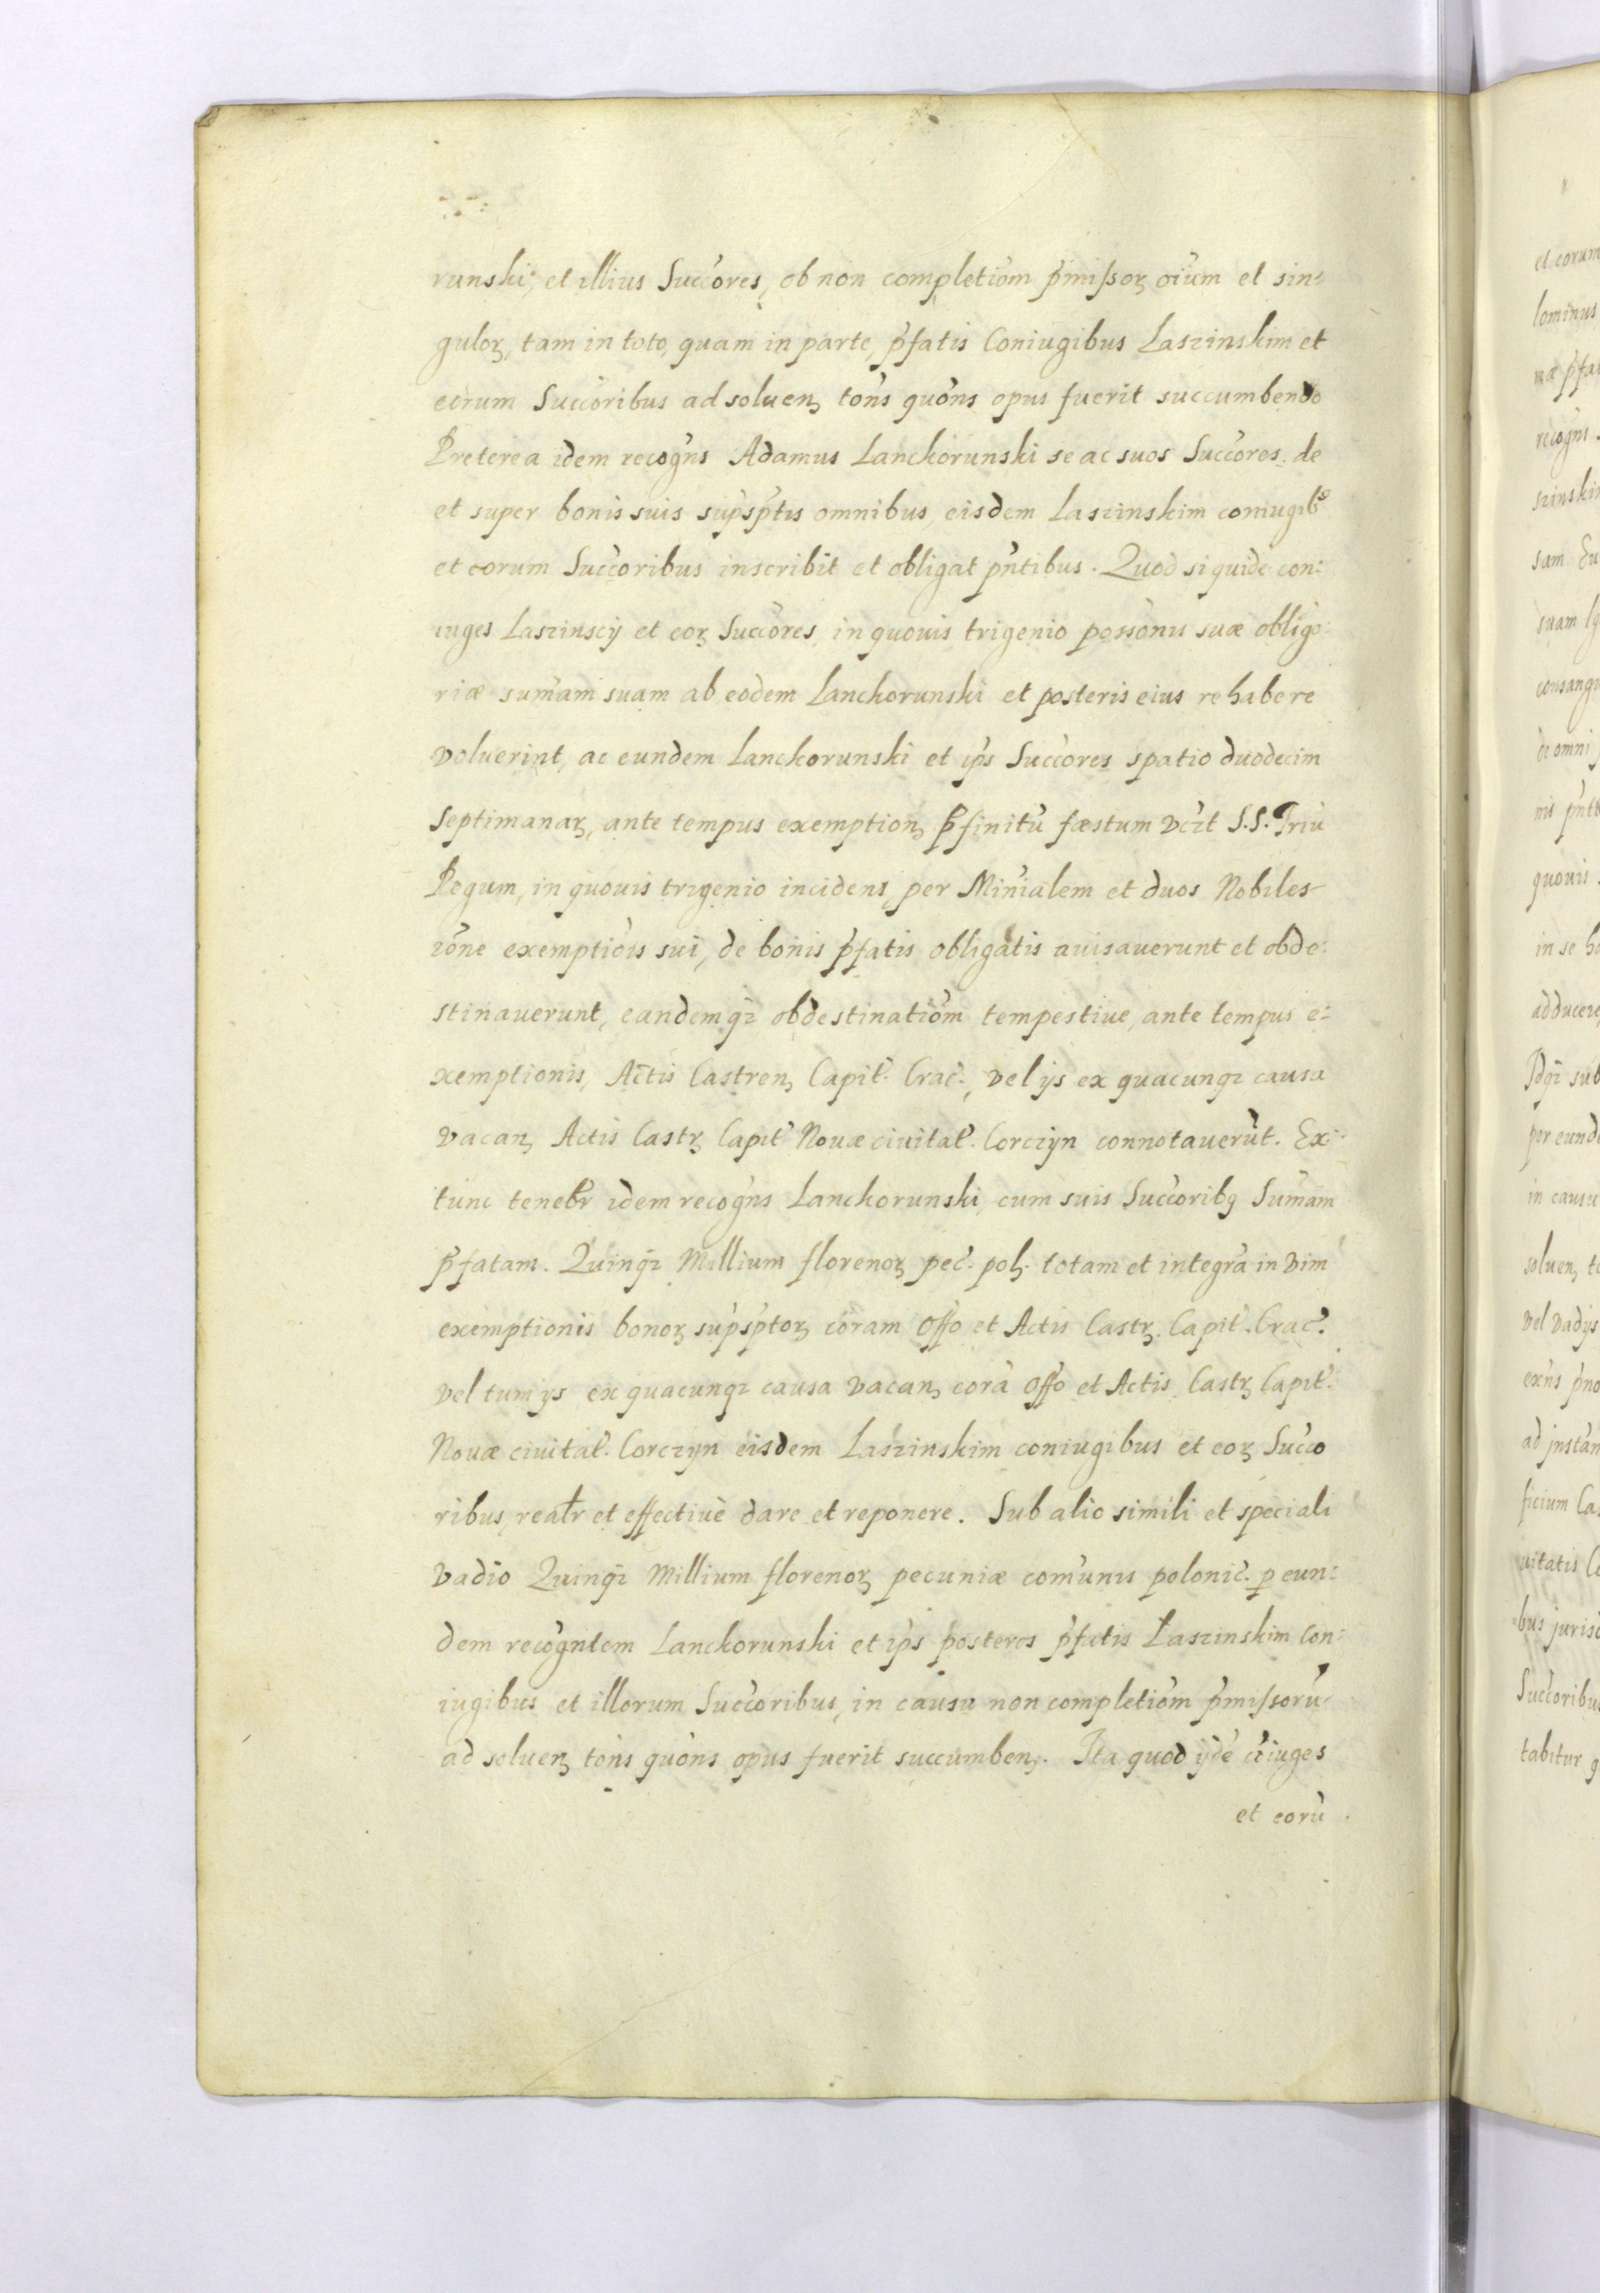 runski, et illius Succ̃ores, ob non completiõm p̃missoꝝ oĩum et sin=
guloꝝ, tam in toto, quam in parte, p̃fatis Coniugibus Laszinskim et
eorum Succ̃oribus ad soluenꝫ tõns quõns opus fuerit succumbendo
Preterea idem recog̃ns Adamus Lanckorunski se ac suos Succ̃ores de
et super bonis suis sup̃sp̃tis omnibus, eisdem Laszinskim coniugib9
et eorum Succ̃oribus inscribit et obligat p̃ntibus. Quod siquidẽ con=
iuges Laszinscÿ et eoꝝ Succ̃ores, in quouis trigenio possõnis suæ obligõ=
riæ sum̃am suam ab eodem Lanckorunski et posteris eius rehabere
voluerint, ac eundem Lanckorunski et ip̃s Succ̃ores spatio duodecim
Septimanaꝝ, ante tempus exemptionꝫ p̃finitũ fæstum vczt S.S. Triũ
Regum, in quouis trigenio incidens, per Miñialem et duos Nobiles
rõne exemptiõis sui, de bonis p̃fatis obligatis auisauerunt et obde=
stinauerunt, eandemqꝫ obdestinatiõm tempestiue, ante tempus e=
xemptionis, Actis Castrenꝫ Capit̃. Crac̃., vel ijs ex quacunqꝫ causa
vacanꝫ Actis Castꝝ Capit̃ Nouæ ciuitat̃. Corczyn connotauerũt. Ex=
tunc tenebr̃ idem recog̃ns Lanckorunski, cum suis Succ̃oribꝫ Sum̃am
p̃fatam. Quinqꝫ Millium florenoꝝ pec̃. polꝫ. totam et integrã in vim
exemptionis bonoꝝ sup̃sp̃toꝝ coram Offo et Actis Castꝝ. Capit̃. Crac̃.
vel tum ijs ex quacunqꝫ causa vacanꝫ corã Offo et Actis Castꝝ Capit̃.
Nouæ ciuitat̃. Corczyn eisdem Laszinskim coniugibus et eoꝝ Succ̃o
ribus, realr̃ et effectiuè dare et reponere. Sub alio simili et speciali
vadio Quinqꝫ Millium florenoꝝ pecuniæ com̃unis polonic̃. ꝑ eun=
dem recog̃ntem Lanckorunski et ip̃s posteros p̃fatis Laszinskim Con=
iugibus et illorum Succ̃oribus, in causu non completiõm p̃missorũ
ad soluenꝫ tõns quõns opus fuerit succumbenꝫ. Ita quod ijdẽ cõiuges
et eorũ